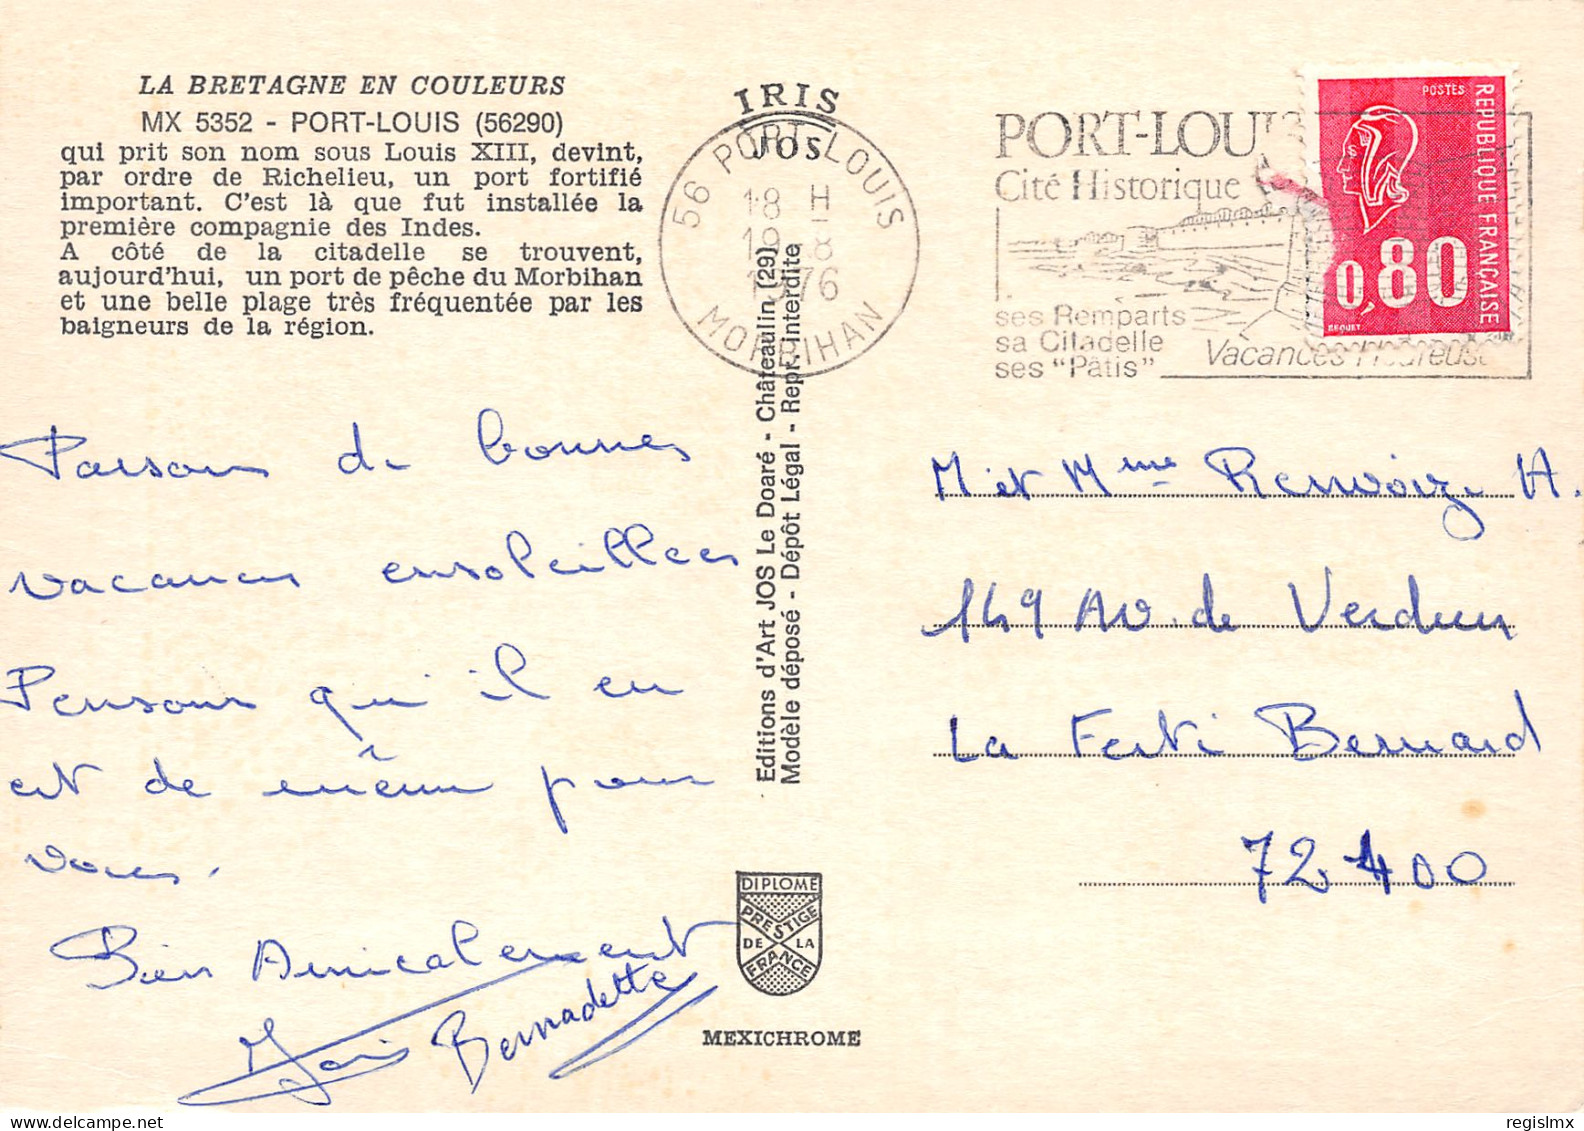 LA BRETAGNE EN COULEURS
MX 5352 - PORT-LOUIS (56290)
qui prit son nom sous Louis XIII, devint,
par ordre de Richelieu, un port fortifié
important. C'est là que fut installée la
première compagnie des Indes.
A côté de la citadelle se trouvent,
aujourd'hui, un port de pêche du Morbihan
et une belle plage très fréquentée par les
baigneurs de la région.
Passons de bonnes
vacances ensoleillées
Pensons qu'il en
est de même pour
vous.
Bien Amicalement
Bernadette
IRIS
JOS
56 PORT-LOUIS
18 H
19 8
1976
MORBIHAN
Editions d'Art JOS Le Doaré - Châteaulin (29)
Modèle déposé - Dépôt Légal - Repr. interdite
DIPLOME
PRESTIGE
DE LA
FRANCE
MEXICHROME
PORT-LOUIS
Cité Historique
ses Remparts
sa Citadelle
ses "Pâtis"
Vacances Heureuses
POSTES
REPUBLIQUE FRANÇAISE
0,80
BEQUET
M et Mme Renvoizé A.
149 Av. de Verdun
La Ferté Bernard
72400
regislmx